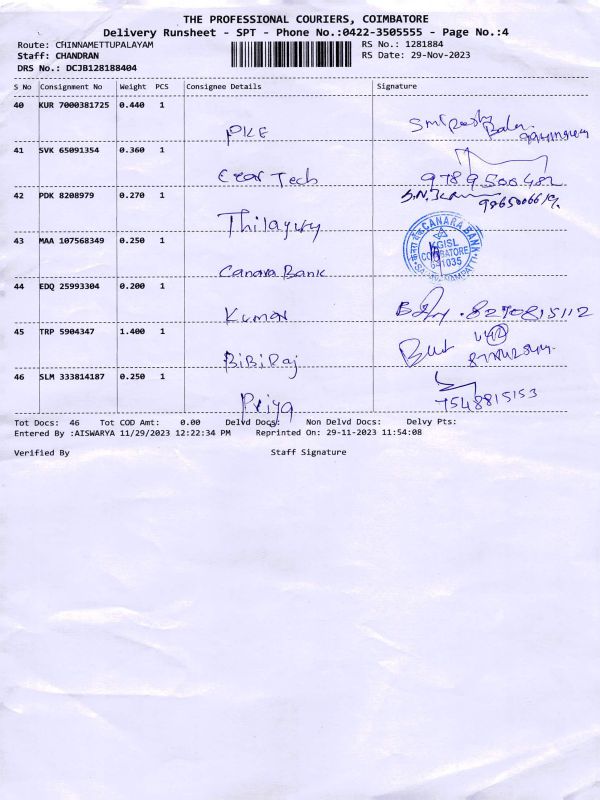 THE PROFESSIONAL COURIERS, COIMBATORE
Delivery Runsheet - SPT - Phone No.:0422-3505555 - Page No.:4
Route: CHINNAMETTUPALAYAM RS No.: 1281884
Staff: CHANDRAN RS Date: 29-Nov-2023
DRS No.: DCJB128188404
S No Consignment No Weight PCS Consignee Details Signature
40 KUR 7000381725 0.440 1
PKE
41 SVK 65091354 0.360 1
Tech 9789500482
42 PDK 8208979 0.270 1
43 MAA 107568349 0.250 1
CANARA BANK
KGISL
COIMBATORE
641035
Canara Bank
44 EDQ 25993304 0.200 1
Kumar 8270815112
45 TRP 5904347 1.400 1
BiBiRaj
46 SLM 333814187 0.250 1
Priya 7548815153
Tot Docs: 46 Tot COD Amt: 0.00 Delvd Docs: Non Delvd Docs: Delvy Pts:
Entered By :AISWARYA 11/29/2023 12:22:34 PM Reprinted On: 29-11-2023 11:54:08
Verified By Staff Signature